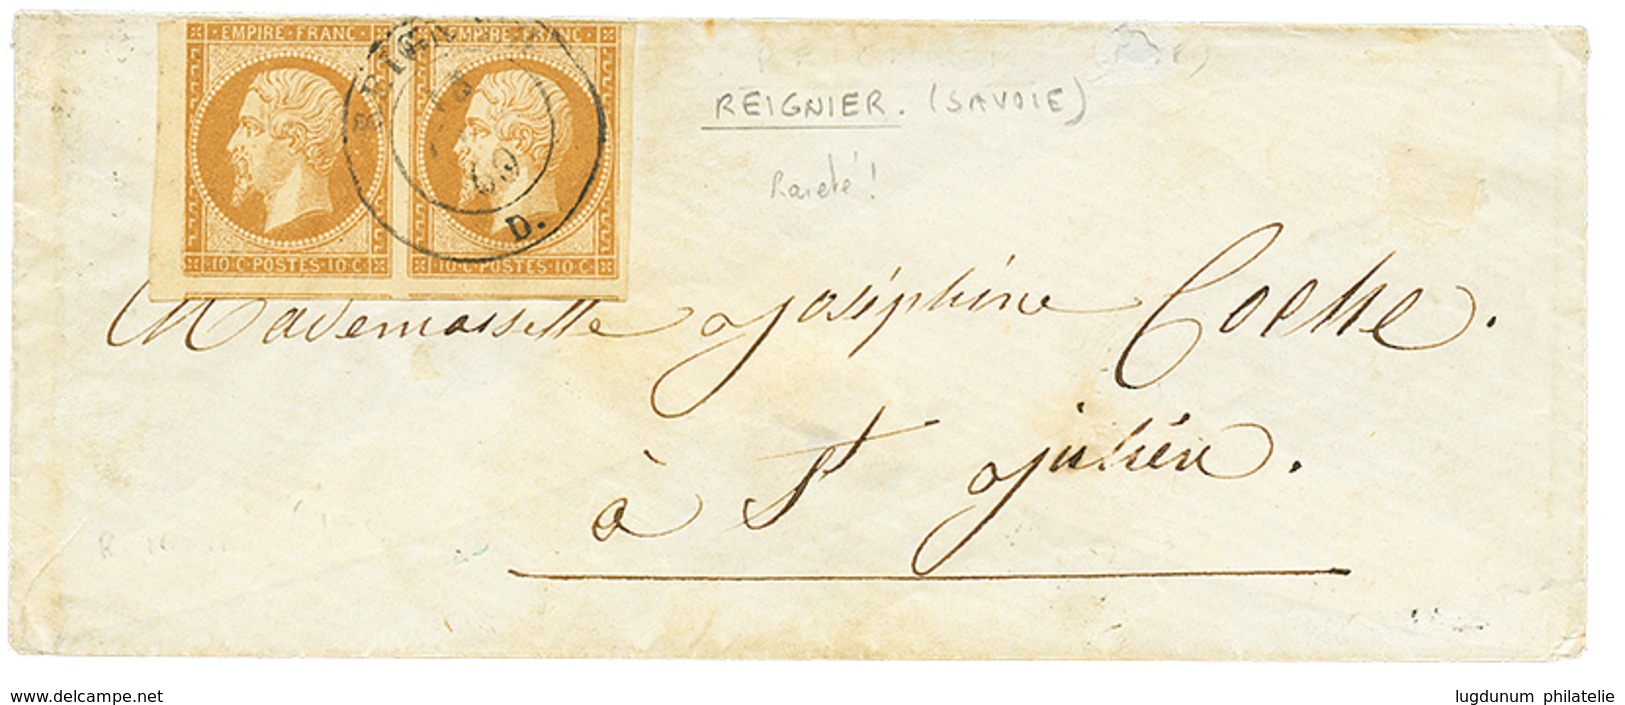 EMPIRE·FRANC· EMPIRE·FRANC·
10·C·POSTES·10·C· 10·C·POSTES·10·C·
60
D.
REIGNIER. (SAVOIE)
Rareté!
Mademoiselle Joséphine
à St Julien.
www.delcampe.net
lugdunum philatelie